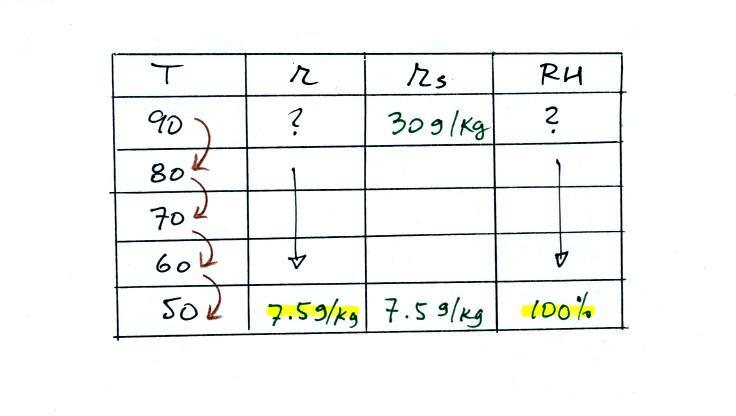 T r rs RH
90 ? 30 g/kg ?
80
70
60
50 7.5 g/kg 7.5 g/kg 100%